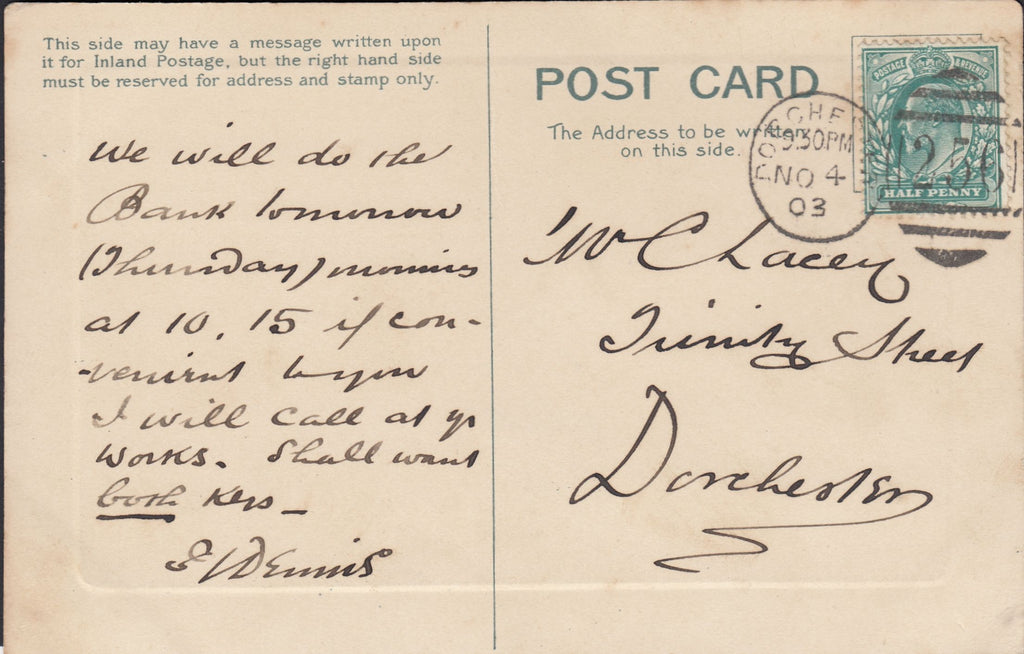 This side may have a message written upon
it for Inland Postage, but the right hand side
must be reserved for address and stamp only.
We will do the
Bank tomorrow
(Thursday) morning
at 10.15 if con-
-venient to you
I will call at yr
works. Shall want
both Keys_
Dennis
POST CARD
The Address to be written
on this side.
POSTAGE & REVENUE
HALF PENNY
DORCHE
9.30PM
NO 4
03
256
Lacey
Trinity Street
Dorchester